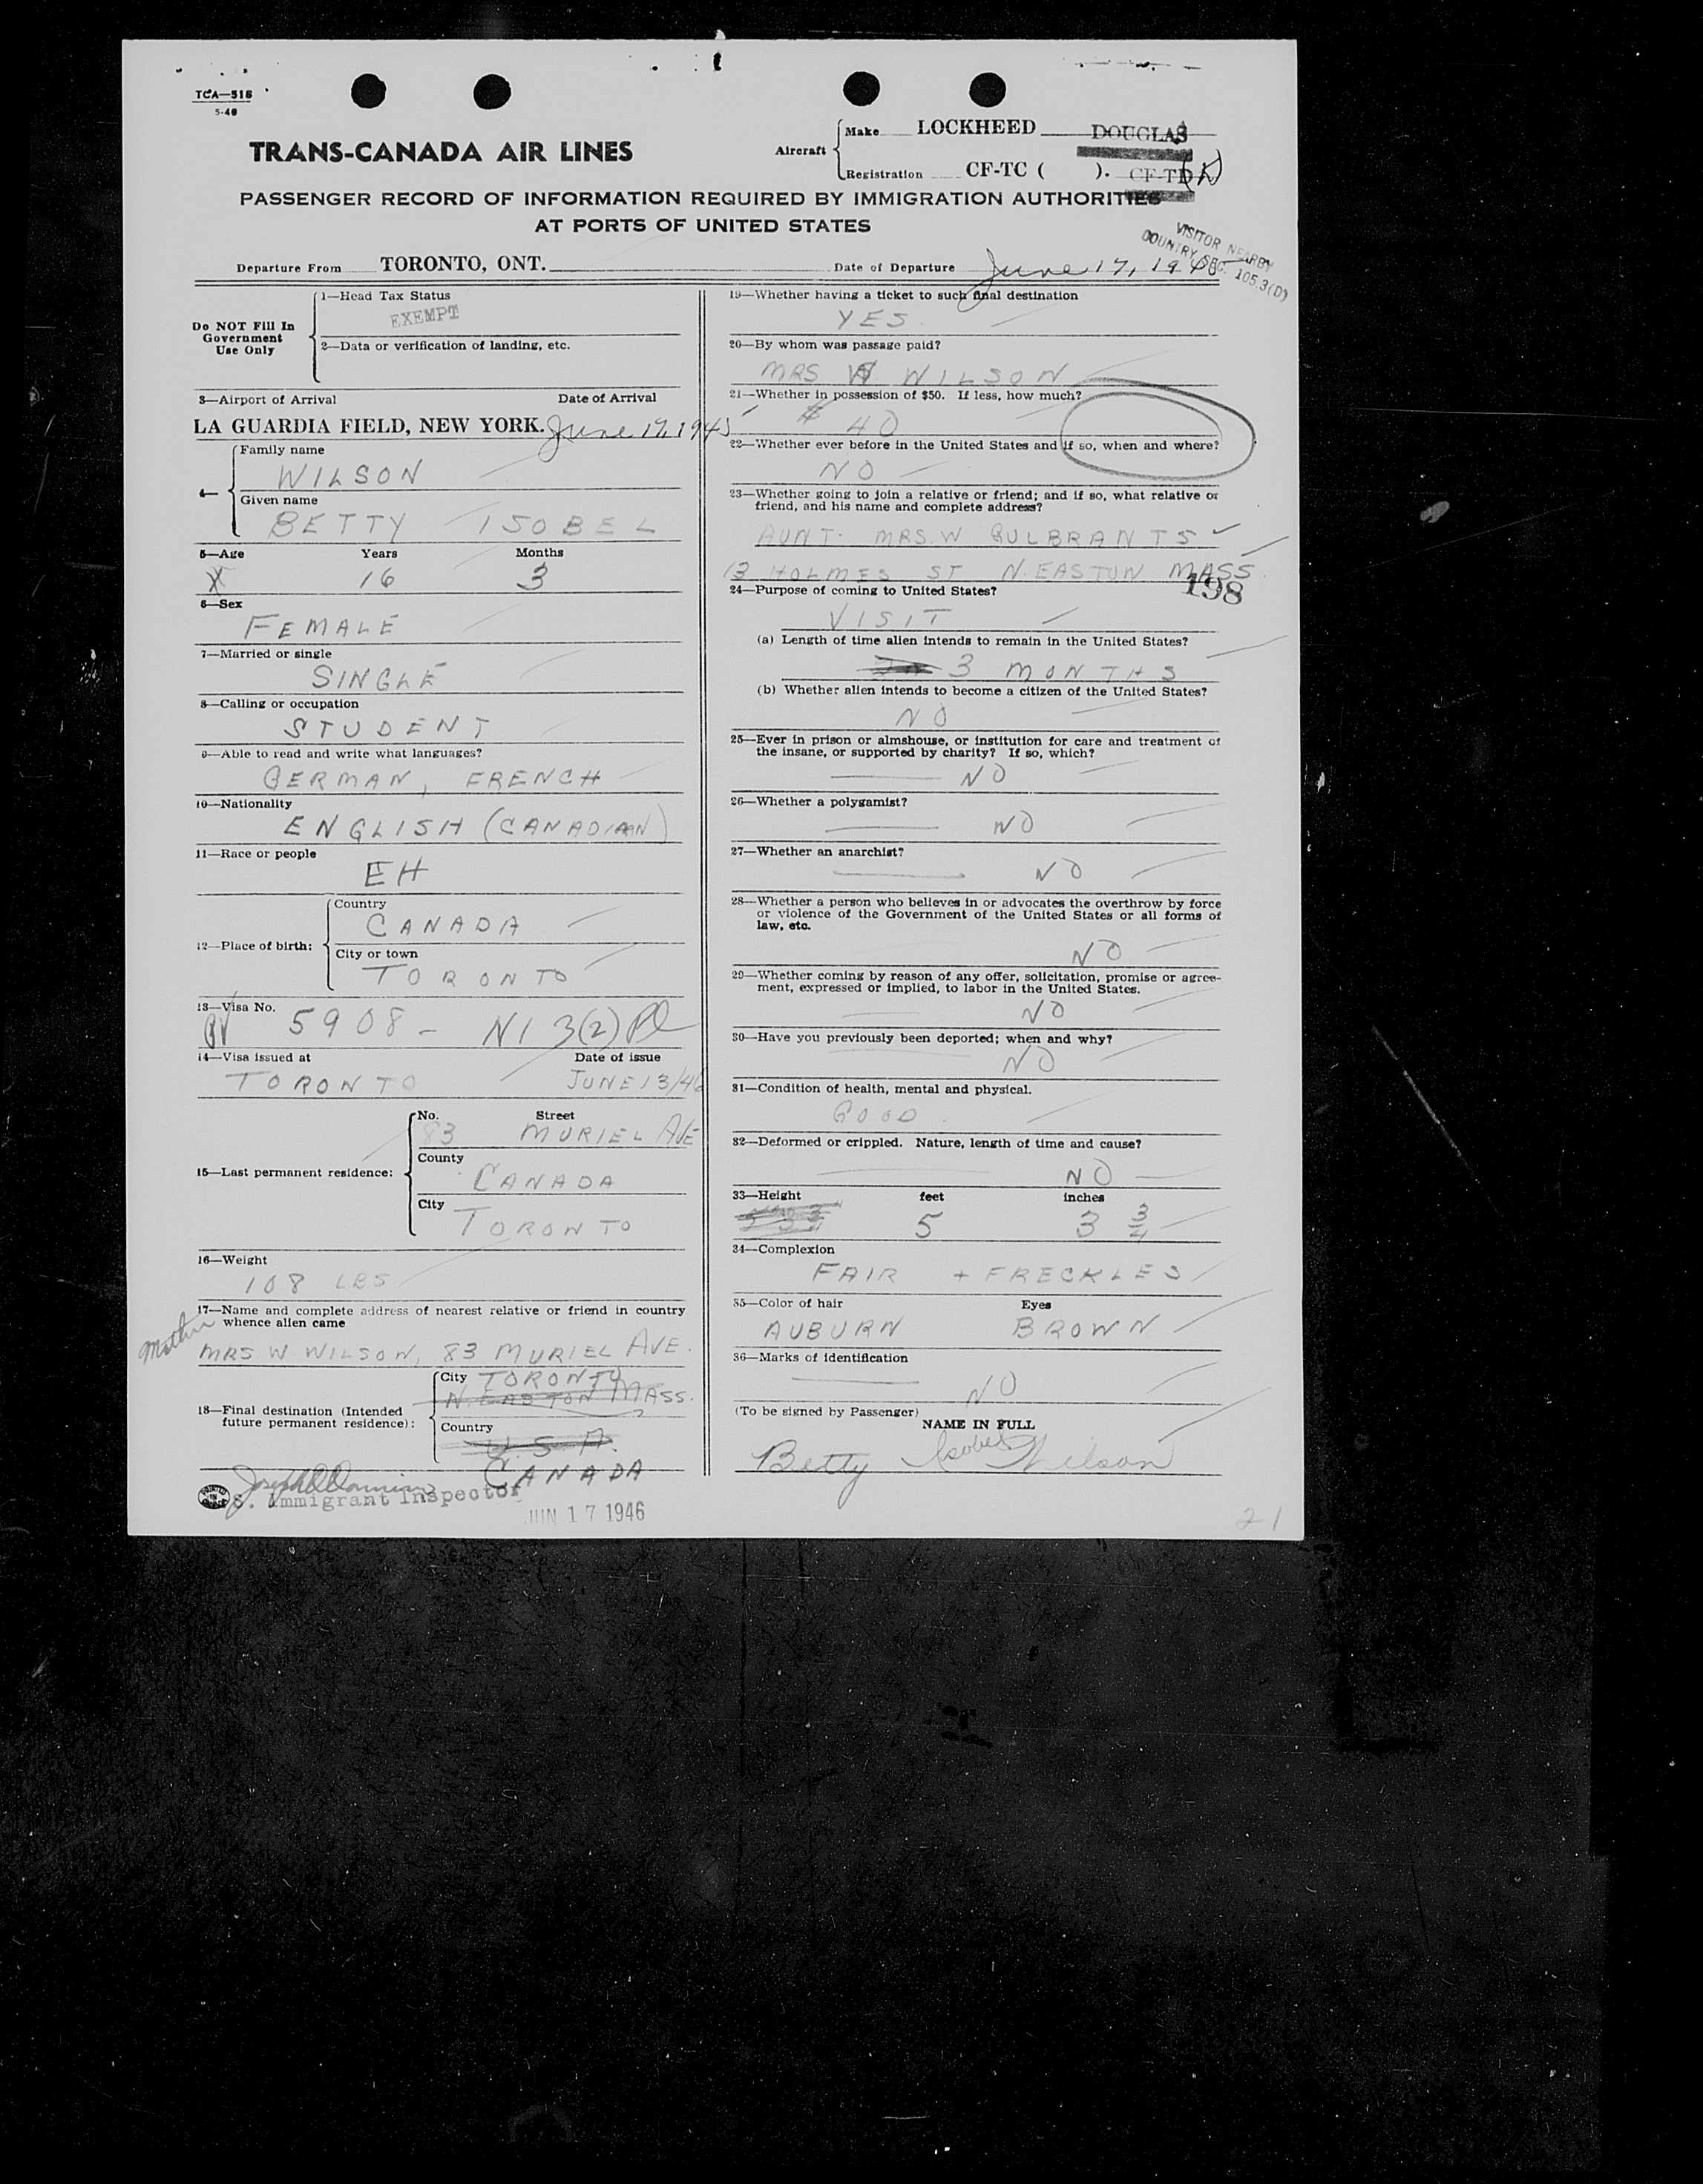 TCA—518
5-46
TRANS-CANADA AIR LINES
Aircraft
Make LOCKHEED DOUGLAS
Registration CF-TC ( ). CF-TD
PASSENGER RECORD OF INFORMATION REQUIRED BY IMMIGRATION AUTHORITIES
AT PORTS OF UNITED STATES
VISITOR NEARBY
COUNTRY SEC. 105.3(D)
Departure From TORONTO, ONT.
Date of Departure June 17, 1946
Do NOT Fill In
Government
Use Only
1—Head Tax Status
EXEMPT
2—Data or verification of landing, etc.
3—Airport of Arrival Date of Arrival
LA GUARDIA FIELD, NEW YORK. June 17, 194
4—
Family name
WILSON
Given name
BETTY ISOBEL
5—Age Years Months
X 16 3
6—Sex
FEMALE
7—Married or single
SINGLE
8—Calling or occupation
STUDENT
9—Able to read and write what languages?
GERMAN, FRENCH
10—Nationality
ENGLISH (CANADIAN)
11—Race or people
EH
12—Place of birth:
Country
CANADA
City or town
TORONTO
13—Visa No.
5908 - NI 3(2) Pl
14—Visa issued at Date of issue
TORONTO JUNE 13/46
15—Last permanent residence:
No. Street
83 MURIEL AVE
County
CANADA
City
TORONTO
16—Weight
108 LBS
17—Name and complete address of nearest relative or friend in country
whence alien came
Mother
MRS W WILSON, 83 MURIEL AVE.
18—Final destination (Intended
future permanent residence):
City TORONTO
N. EASTON MASS.
Country
U.S.A.
CANADA
S. Immigrant Inspector
JUN 17 1946
19—Whether having a ticket to such final destination
YES
20—By whom was passage paid?
MRS W WILSON
21—Whether in possession of $50. If less, how much?
$ 40
22—Whether ever before in the United States and if so, when and where?
NO
23—Whether going to join a relative or friend; and if so, what relative or
friend, and his name and complete address?
AUNT. MRS. W GULBRANTS
13 HOLMES ST N. EASTON MASS.
198
24—Purpose of coming to United States?
VISIT
(a) Length of time alien intends to remain in the United States?
3 MONTHS
(b) Whether alien intends to become a citizen of the United States?
NO
25—Ever in prison or almshouse, or institution for care and treatment of
the insane, or supported by charity? If so, which?
NO
26—Whether a polygamist?
NO
27—Whether an anarchist?
NO
28—Whether a person who believes in or advocates the overthrow by force
or violence of the Government of the United States or all forms of
law, etc.
NO
29—Whether coming by reason of any offer, solicitation, promise or agree-
ment, expressed or implied, to labor in the United States.
NO
30—Have you previously been deported; when and why?
NO
31—Condition of health, mental and physical.
GOOD
32—Deformed or crippled. Nature, length of time and cause?
NO
33—Height feet inches
5 3 3/4
34—Complexion
FAIR + FRECKLES
35—Color of hair Eyes
AUBURN BROWN
36—Marks of identification
NO
(To be signed by Passenger)
NAME IN FULL
Betty Isobel Wilson
21